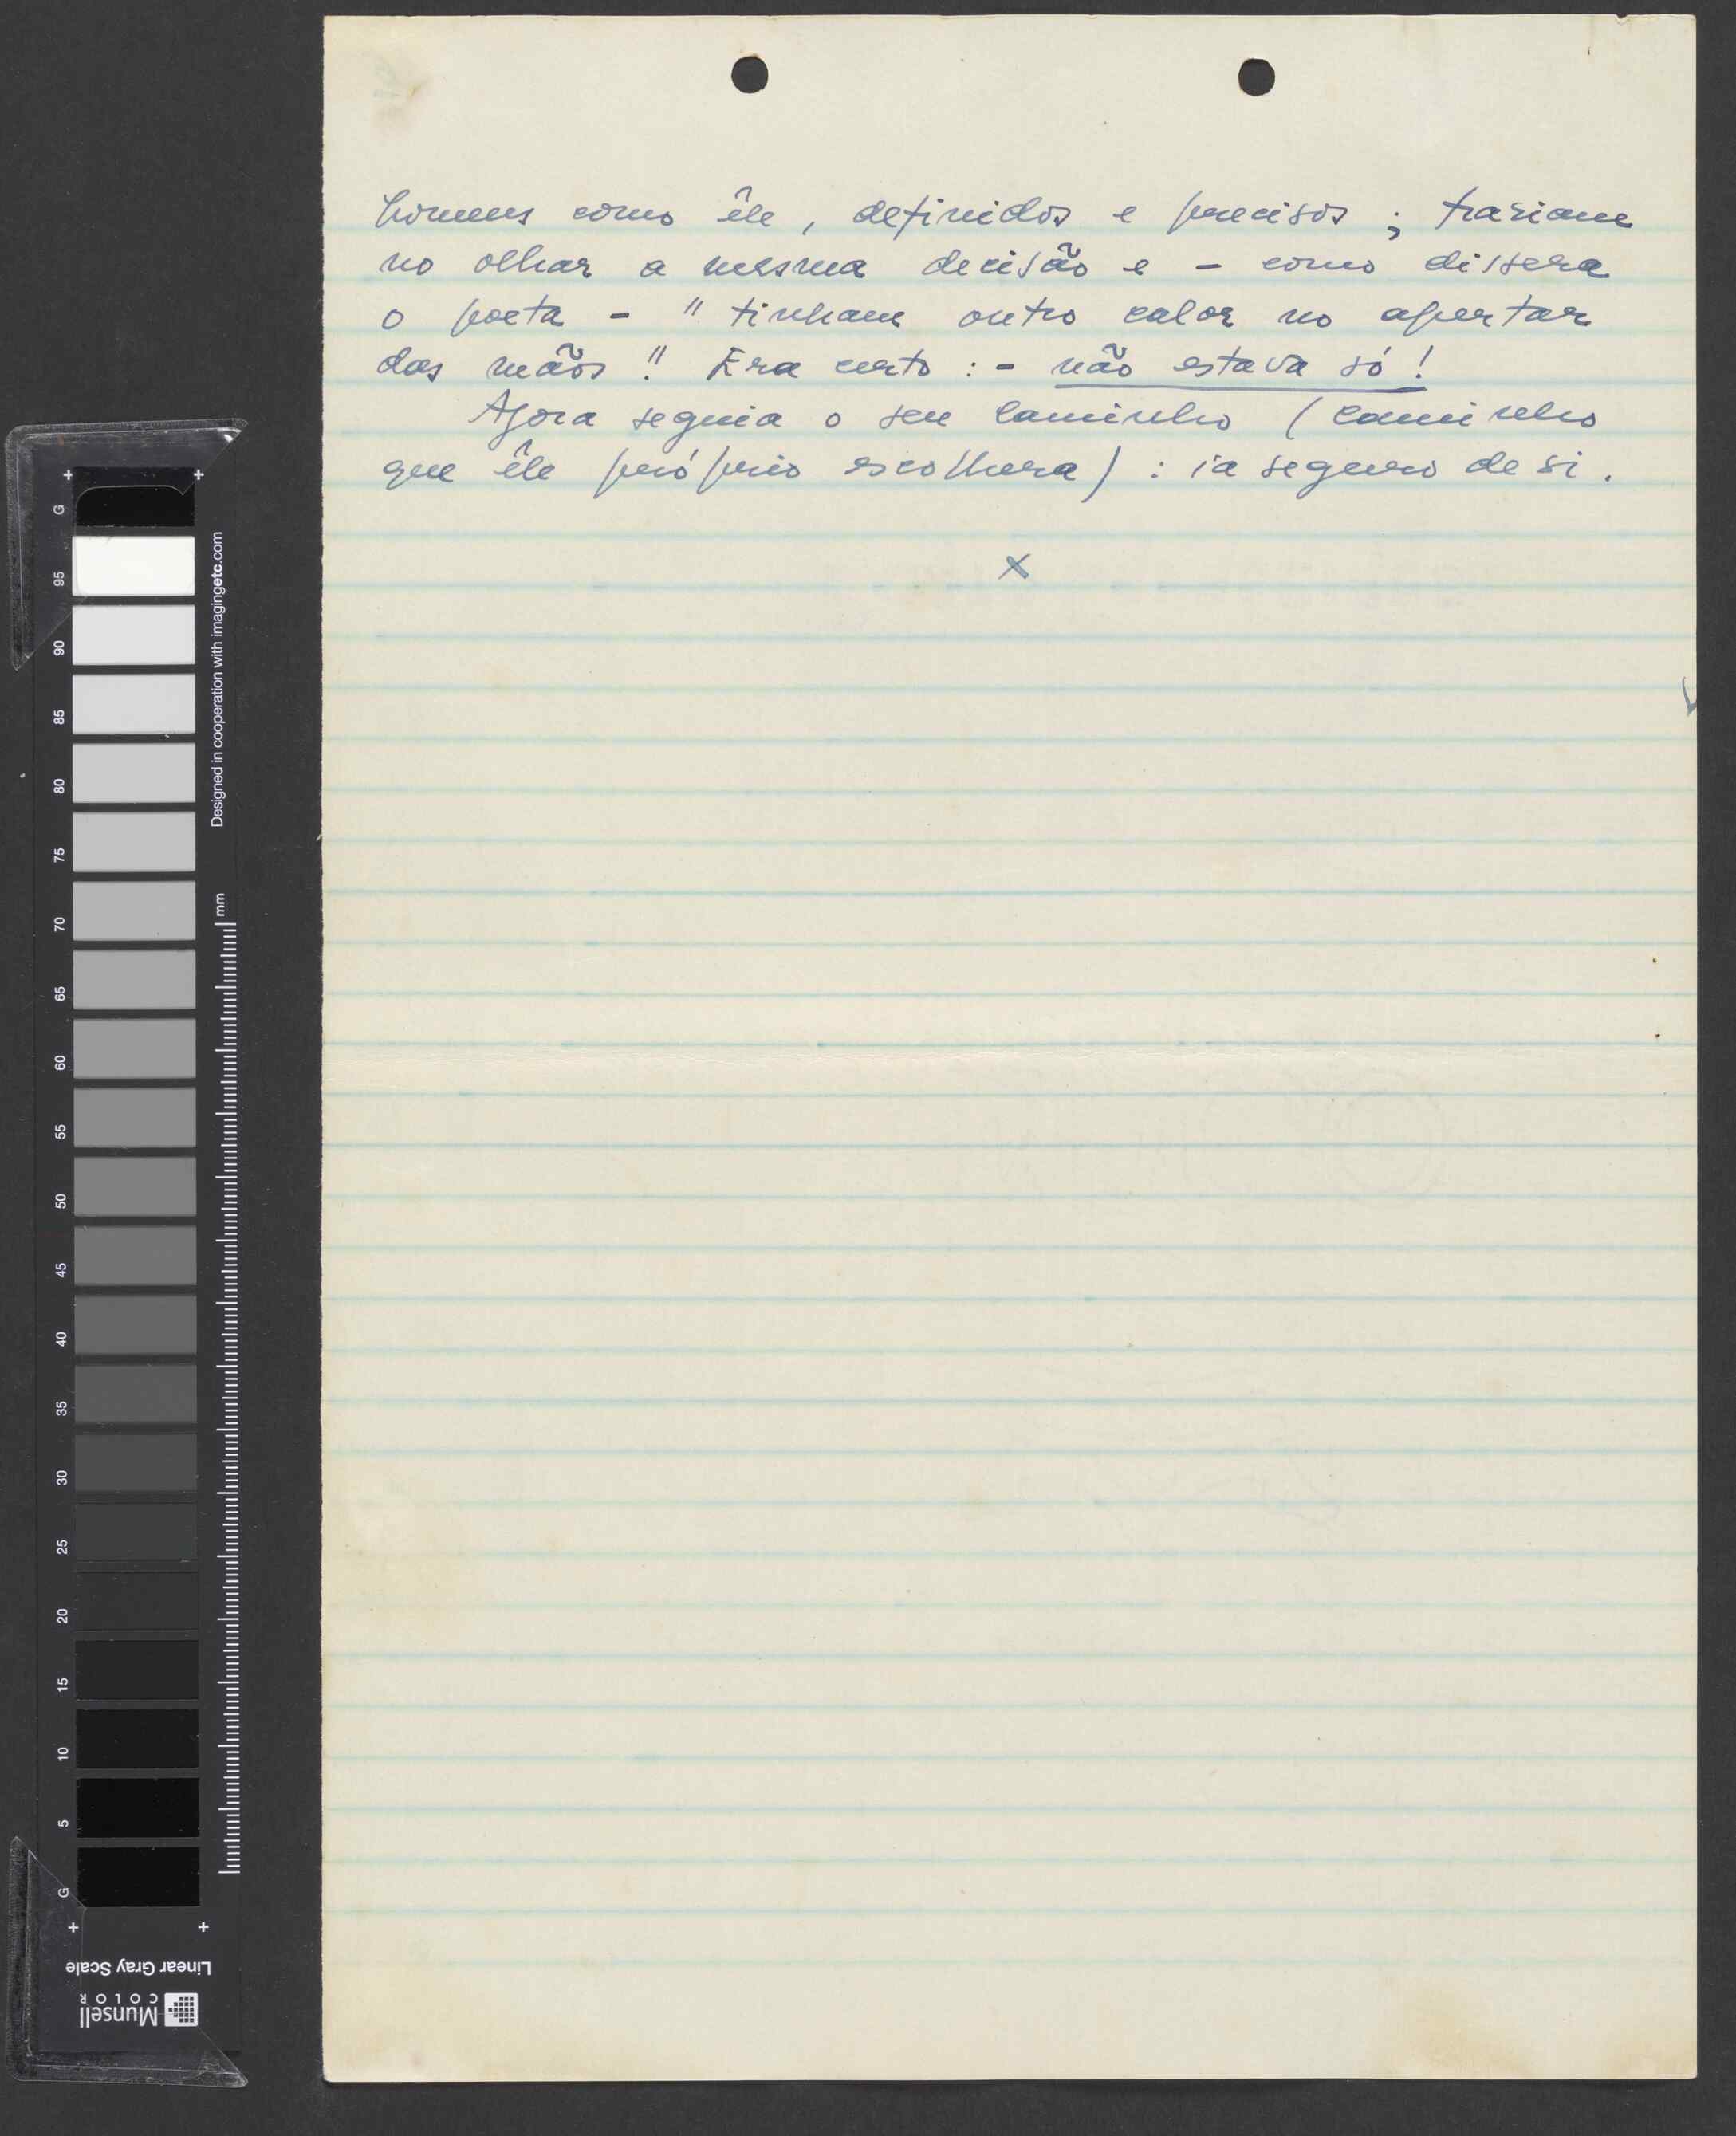 homens como êle, definidos e precisos; traziam
no olhar a mesma decisão e - como dissera
o poeta - "tinham outro calor no apertar
das mãos". Era certo: - não estava só!
Agora seguia o seu caminho (caminho
que êle próprio escolhera): ia seguro de si.
x
G
95
90
85
80
75
70
65
60
55
50
45
40
35
30
25
20
15
10
5
G
Designed in cooperation with imagingetc.com
mm
Linear Gray Scale
Munsell
COLOR